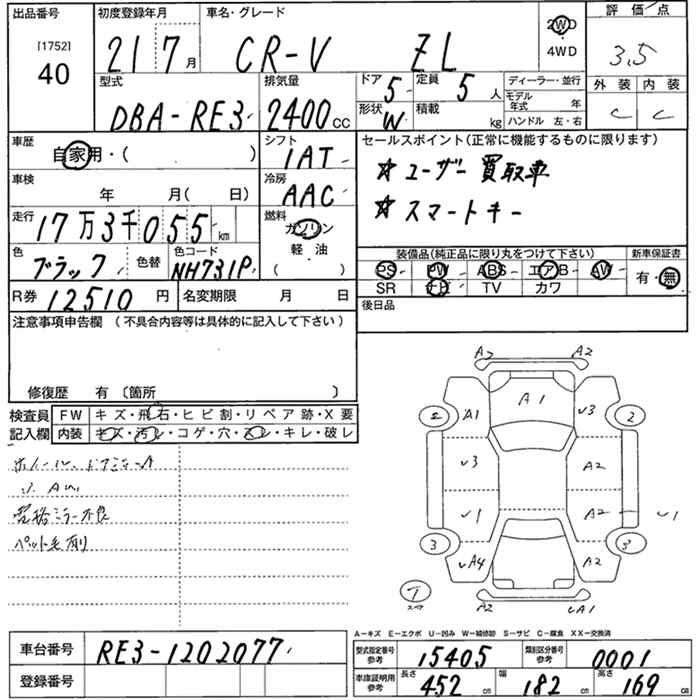 出品番号
[1752]
40
初度登録年月
21 7月
車名・グレード
CR-V ZL
2WD
4WD
評価点
3.5
外装 内装
C C
型式
DBA-RE3
排気量
2400cc
ドア 5
形状 W
定員 5人
積載 kg
ディーラー・並行
モデル年式 年
ハンドル 左・右
車歴
自家用・( )
シフト
IAT
セールスポイント(正常に機能するものに限ります)
☆ユーザー買取車
☆スマートキー
車検
年 月( 日)
冷房
AAC
走行
17万3千055km
燃料
ガソリン
軽・油
( )
色
ブラック
色替
色コード
NH731P
装備品(純正品に限り丸をつけて下さい)
PS PW ABS エアB AW
SR ナビ TV カワ
新車保証書
有・無
R券 12510円
名変期限 月 日
後日品
注意事項申告欄(不具合内容等は具体的に記入して下さい)
修復歴 有〔箇所 〕
検査員記入欄
FW キズ・飛石・ヒビ割・リペア跡・X要
内装 キズ・汚レ・コゲ・穴・スレ・キレ・破レ
格納ミラー不良
ペット毛有
A2 A2
A1
2 A1 U3 2
U3 A2
U1 A2 U1
3 UA4 A2 3
T
スペア
A2 UA1
A-キズ E-エクボ U-凹み W-補修跡 S-サビ C-腐食 XX-交換済
車台番号 RE3-1202077
登録番号
型式指定番号 参考 15405
類別区分番号 参考 0001
車庫証明用 参考
長さ 452cm
幅 182cm
高さ 169cm